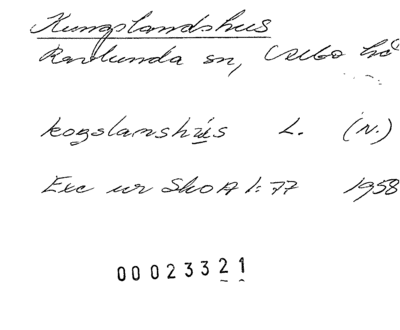 Kungslandshus
Rasbunda sn, Väsbo hd
kogslanshús L. (N.)
Exc ur SkoA 1:77 1958
00023321